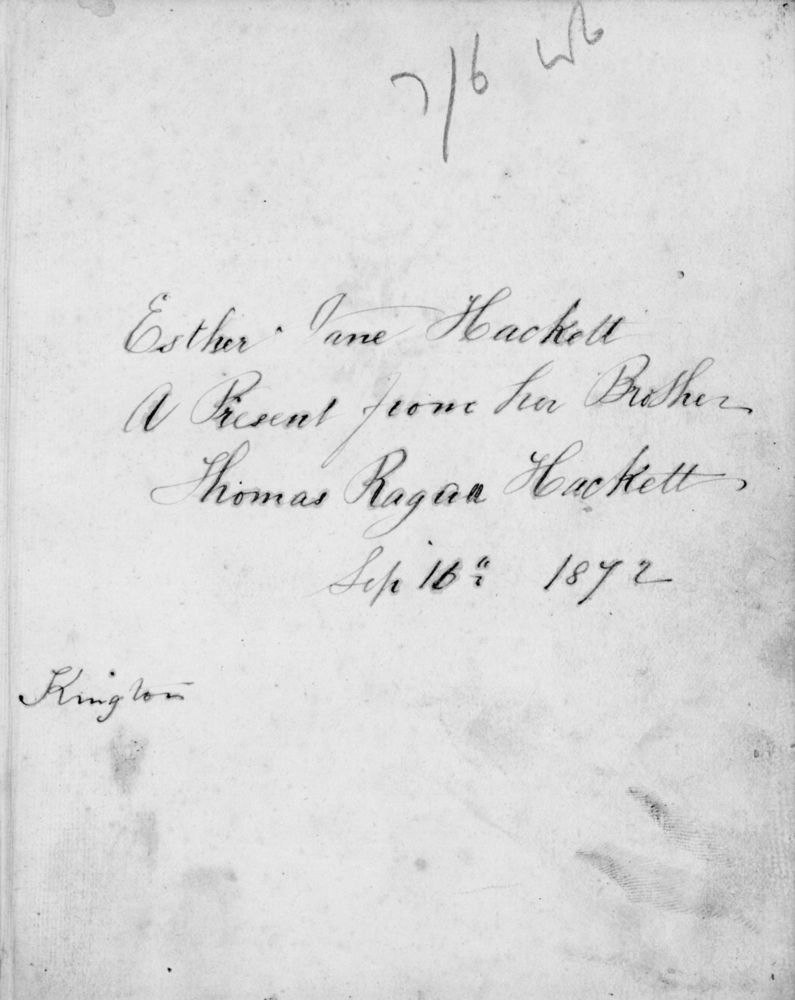 7/6
Esther Jane Hackett
A Present from her Brother
Thomas Ragan Hackett
Sep 16th 1872
Kington